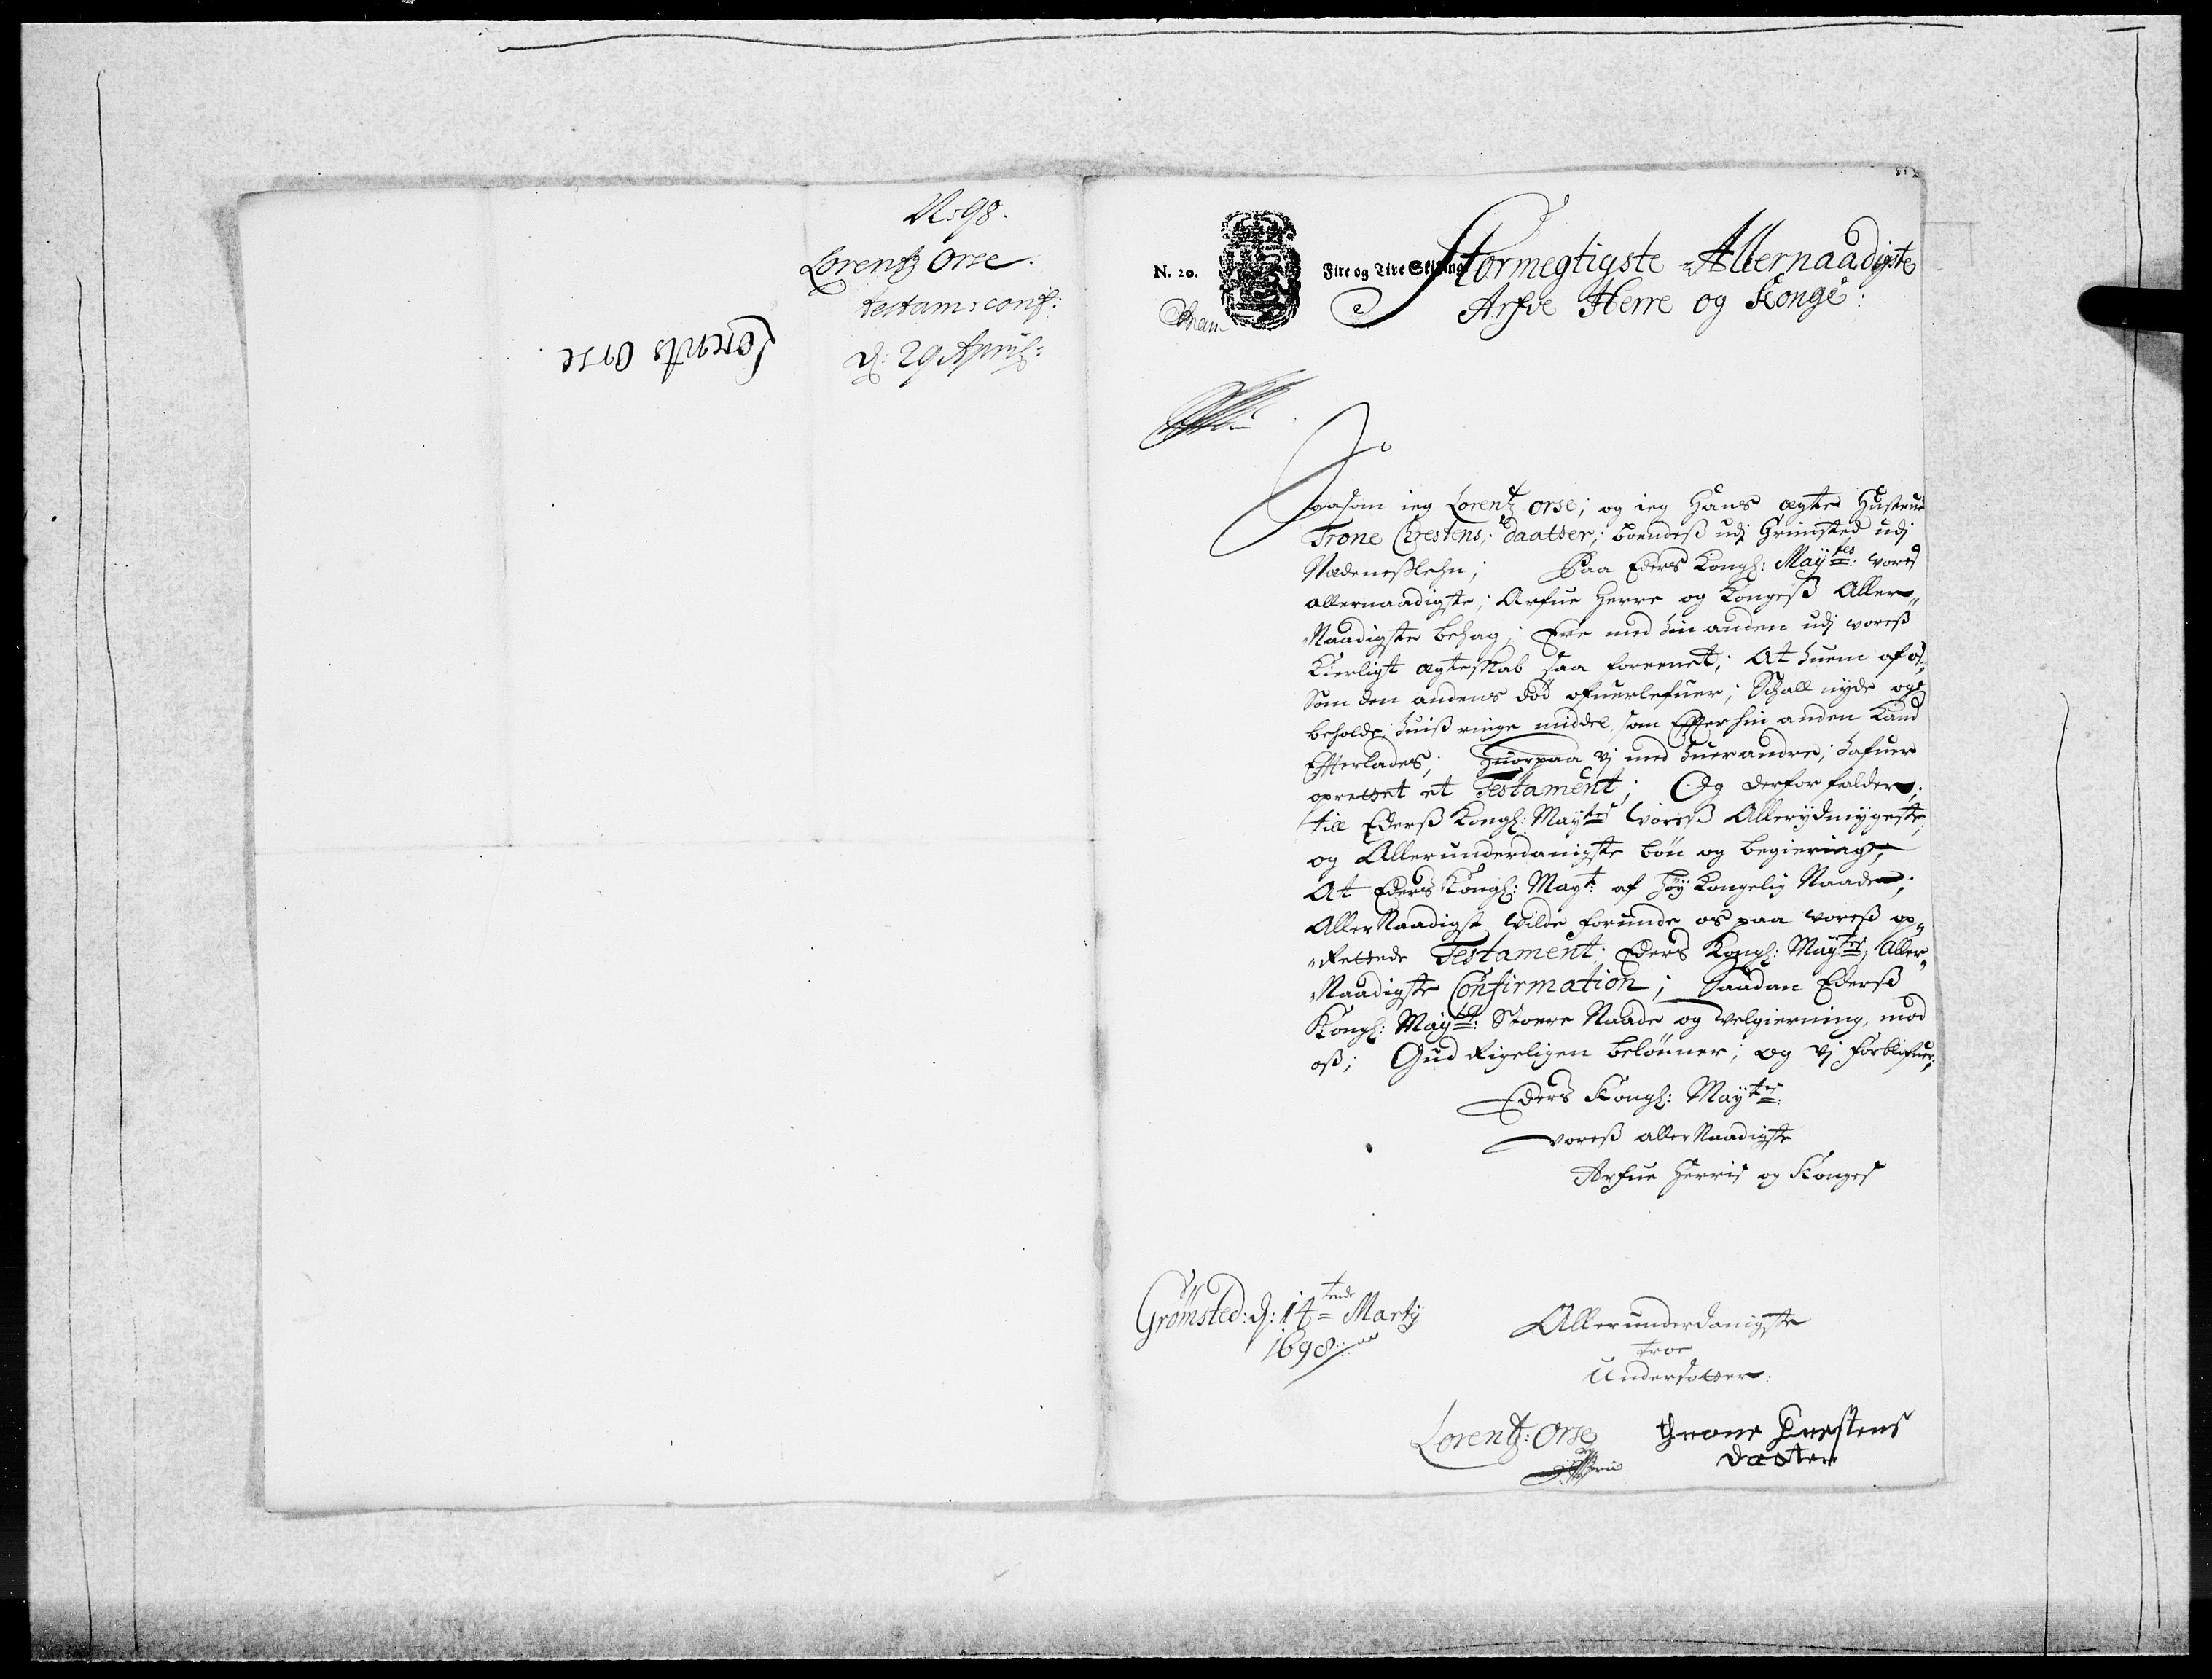 N:98.
Lorentz Orse.
testam: conf:
d: 29 April:
Lorents Orse
N. 20.
Fire og Tive Skilling
Stormegtigste Allernaadigste
Arfve Herre og Konge:
Saasom ieg Lorentz Orse; og ieg Hans egte Hustrue
Trone Chrestens: daatter; boendes udj Grimsted udj
Nedeneslehn; Paa Eders Kongl: Maÿtes: vores
allernaadigste; Arfue Herre og Kongeß Aller„
Naadigste behag; Ere med hin anden udj voreß
Kierligt egteskab saa foreenet; At huem af os
Som den andens død ofuerlefuer; Schall nyde og
beholde huiß ringe middel som Effter hin anden Kand
Effterlades; Huorpaa vj med huerandre; hafuer
oprettet et Testament; Og derfor falder
till Ederß Kongl: Maÿtes Voreß Allerydmygeste
og Allerunderdanigste bøn og begiering;
At Eders Kongl: Mayt: af høy Kongelig Naade;
AllerNaadigst vilde forunde os paa voreß op„
„Rettede Testament; Eders Kongl: Maÿtes; Aller„
Naadigste Confirmation; Saadan Ederß
Kongl: Maÿtes: Stoere Naade og velgierning, mod
oß; Gud Rigeligen belønner; og vj forblifuer;
Eders Kongl: Maÿtes
voreß allerNaadigste
Arfue Herris og Konges
Grømsted: d: 14tende Martij
1698
Allerunderdanigste
troe
Undersotter:
Lorentz: Orse
throne Chrestens
daater